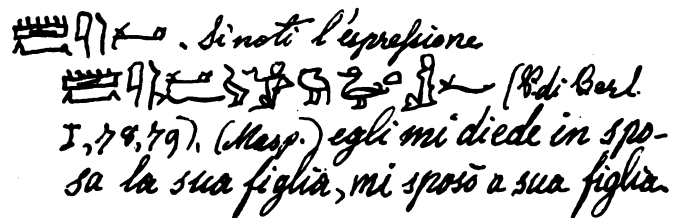 . Si noti l'espreſsione
(P. di Berl.
I, 78, 79). (Masp.) egli mi diede in spo-
sa la sua figlia, mi sposò a sua figlia.